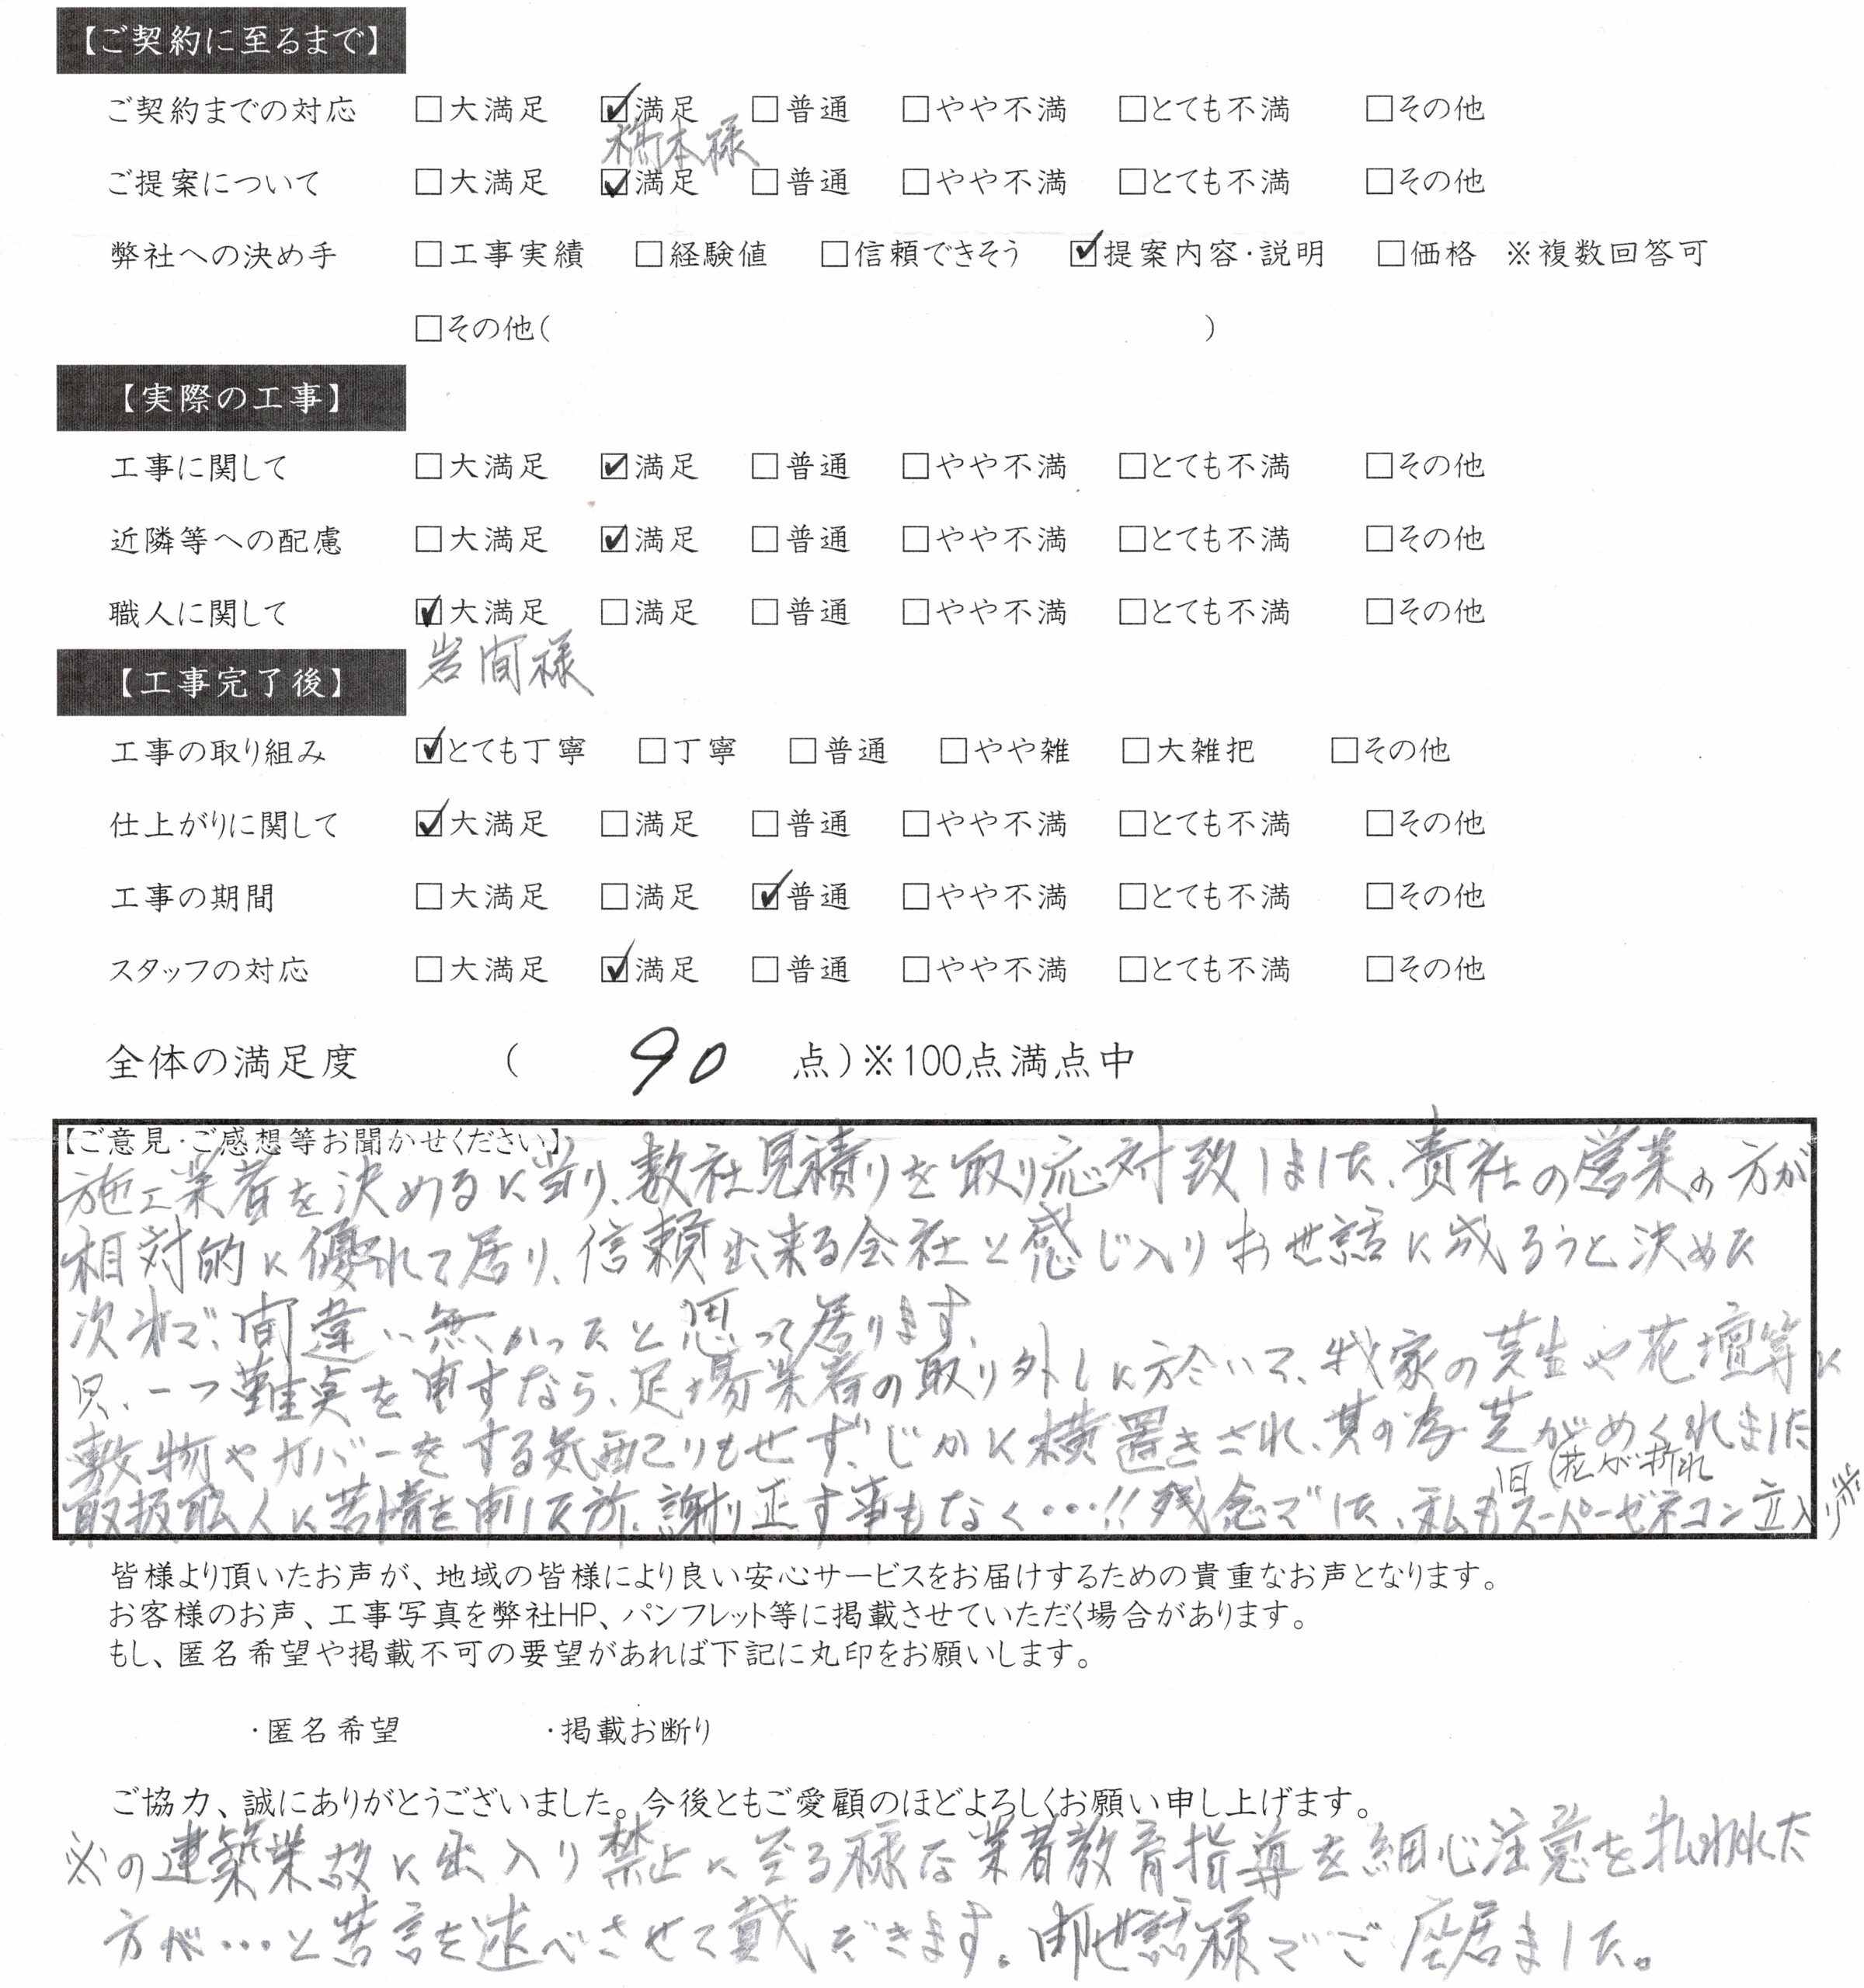 【ご契約に至るまで】
ご契約までの対応 □大満足 ☑満足 □普通 □やや不満 □とても不満 □その他
橋本様
ご提案について □大満足 ☑満足 □普通 □やや不満 □とても不満 □その他
弊社への決め手 □工事実績 □経験値 □信頼できそう ☑提案内容・説明 □価格 ※複数回答可
□その他( )
【実際の工事】
工事に関して □大満足 ☑満足 □普通 □やや不満 □とても不満 □その他
近隣等への配慮 □大満足 ☑満足 □普通 □やや不満 □とても不満 □その他
職人に関して ☑大満足 □満足 □普通 □やや不満 □とても不満 □その他
岩間様
【工事完了後】
工事の取り組み ☑とても丁寧 □丁寧 □普通 □やや雑 □大雑把 □その他
仕上がりに関して ☑大満足 □満足 □普通 □やや不満 □とても不満 □その他
工事の期間 □大満足 □満足 ☑普通 □やや不満 □とても不満 □その他
スタッフの対応 □大満足 ☑満足 □普通 □やや不満 □とても不満 □その他
全体の満足度 ( 90 点)※100点満点中
【ご意見・ご感想等お聞かせください】
施工業者を決めるに当り、数社見積りを取り応対致しました、貴社の営業の方が
相対的に優れて居り、信頼出来る会社と感じ入りお世話に成ろうと決めた
次第で、間違い無かったと思って居ります、
只、一つ難点を申すなら、足場業者の取り外しに於いて、我家の芝生や花壇等に
敷物やカバーをする気配りもせず、じかに横置きされ、其の為芝がめくれました
(花が折れ
取扱職人に苦情を申した所、謝り正す事もなく・・・!!残念でした、私も旧スーパーゼネコン立入り
皆様より頂いたお声が、地域の皆様により良い安心サービスをお届けするための貴重なお声となります。
お客様のお声、工事写真を弊社HP、パンフレット等に掲載させていただく場合があります。
もし、匿名希望や掲載不可の要望があれば下記に丸印をお願いします。
・匿名希望 ・掲載お断り
ご協力、誠にありがとうございました。今後ともご愛顧のほどよろしくお願い申し上げます。
※の建築業故に出入り禁止に至る様な業者教育指導を細心注意を払われた
方が・・・と苦言を述べさせて戴だきます。御世話様でご座居ました。